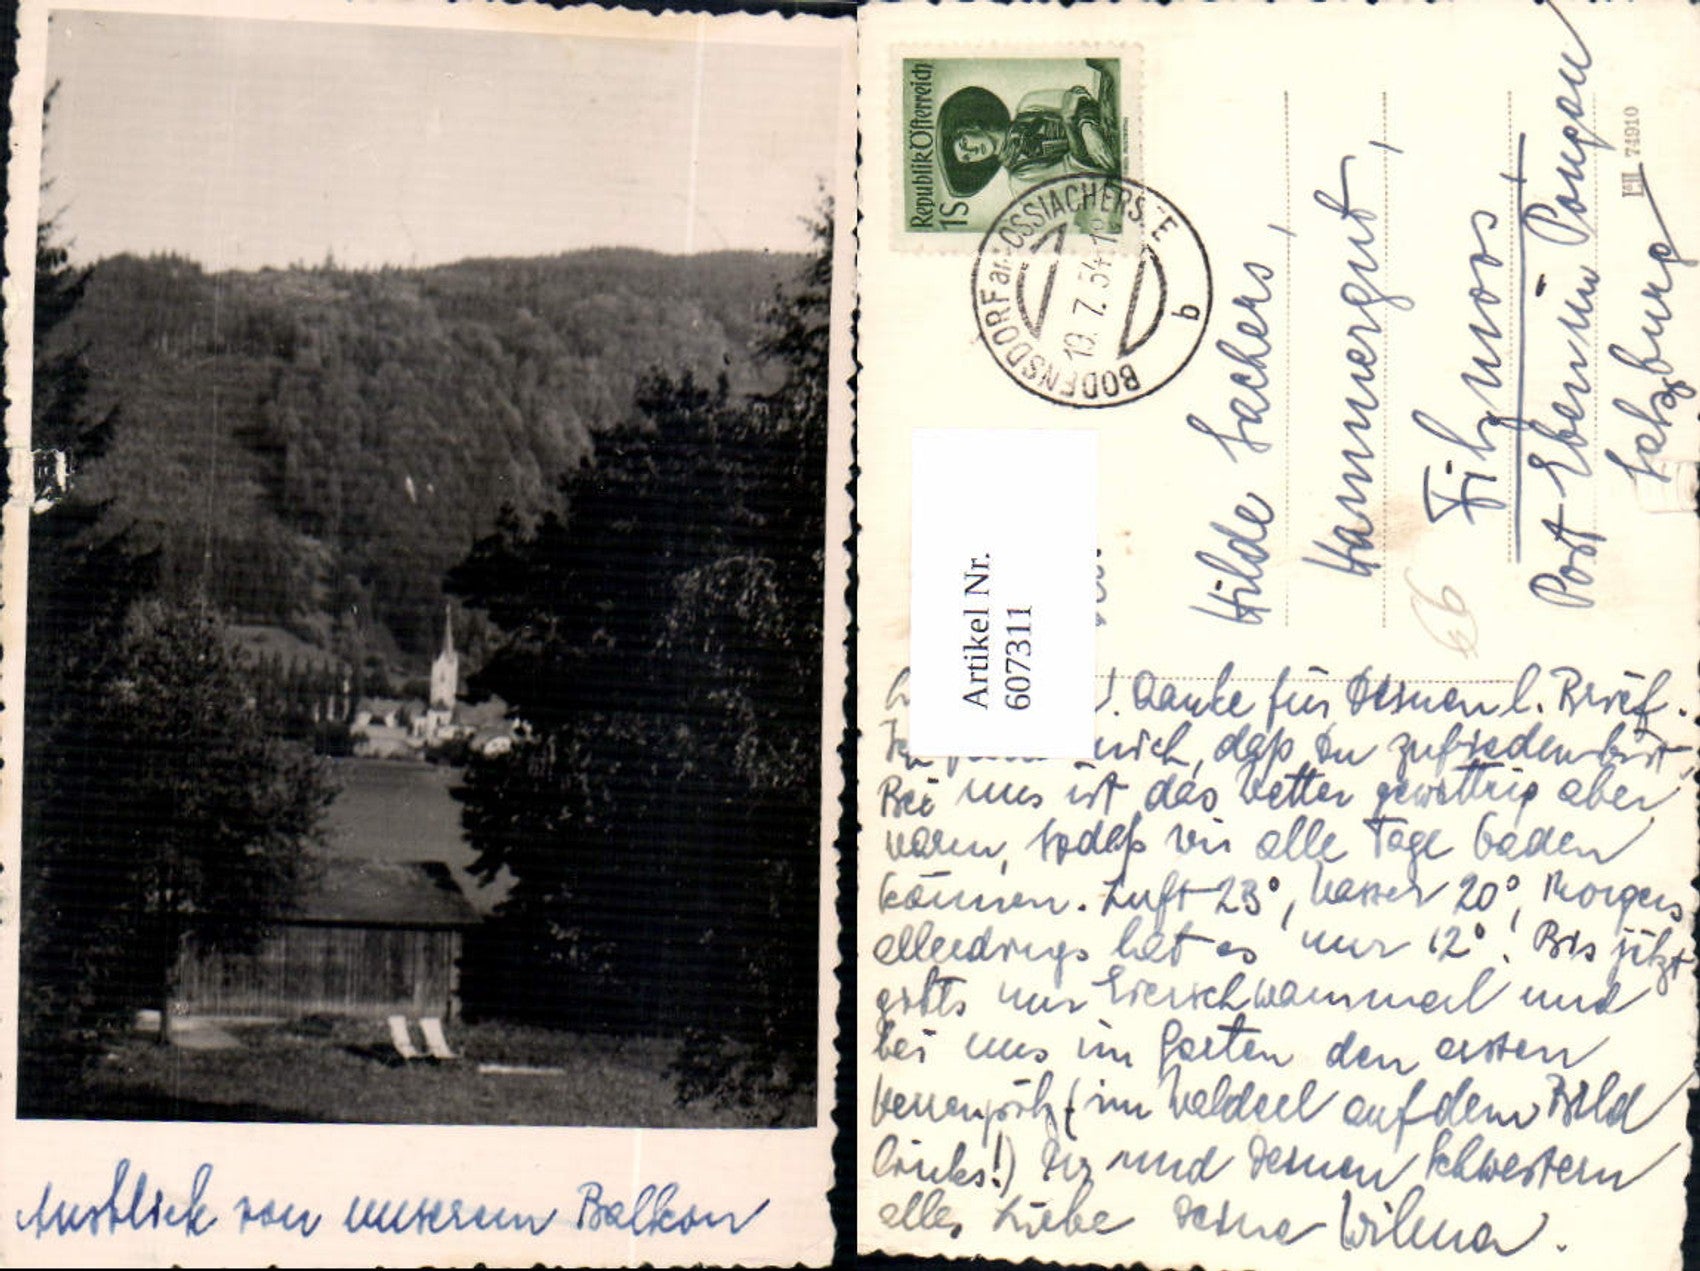 Ausblick von unserem Balkon
Republik Österreich
1S
BODENSDORF am OSSIACHERSEE
19.7.54
b
Artikel Nr.
6073111
Hilde Sachers,
Hammergut,
Filzmoos,
Post Eben im Pongau
Salzburg
74910
66
! Danke für Deinen l. Brief.
Ich mich, daß Du zufrieden bist,
Bei uns ist das Wetter gewittrig aber
warm, sodaß wir alle Tage baden
können. Luft 23°, Wasser 20°, Morgens
allerdings hat es nur 12°! Bis jetzt
gibts nur Eierschwammerl und
bei uns im Garten den ersten
Herrenpilz (im Walderl auf dem Bild
links!) Dir und Deinen Schwestern
alles Liebe Deine Wilma.